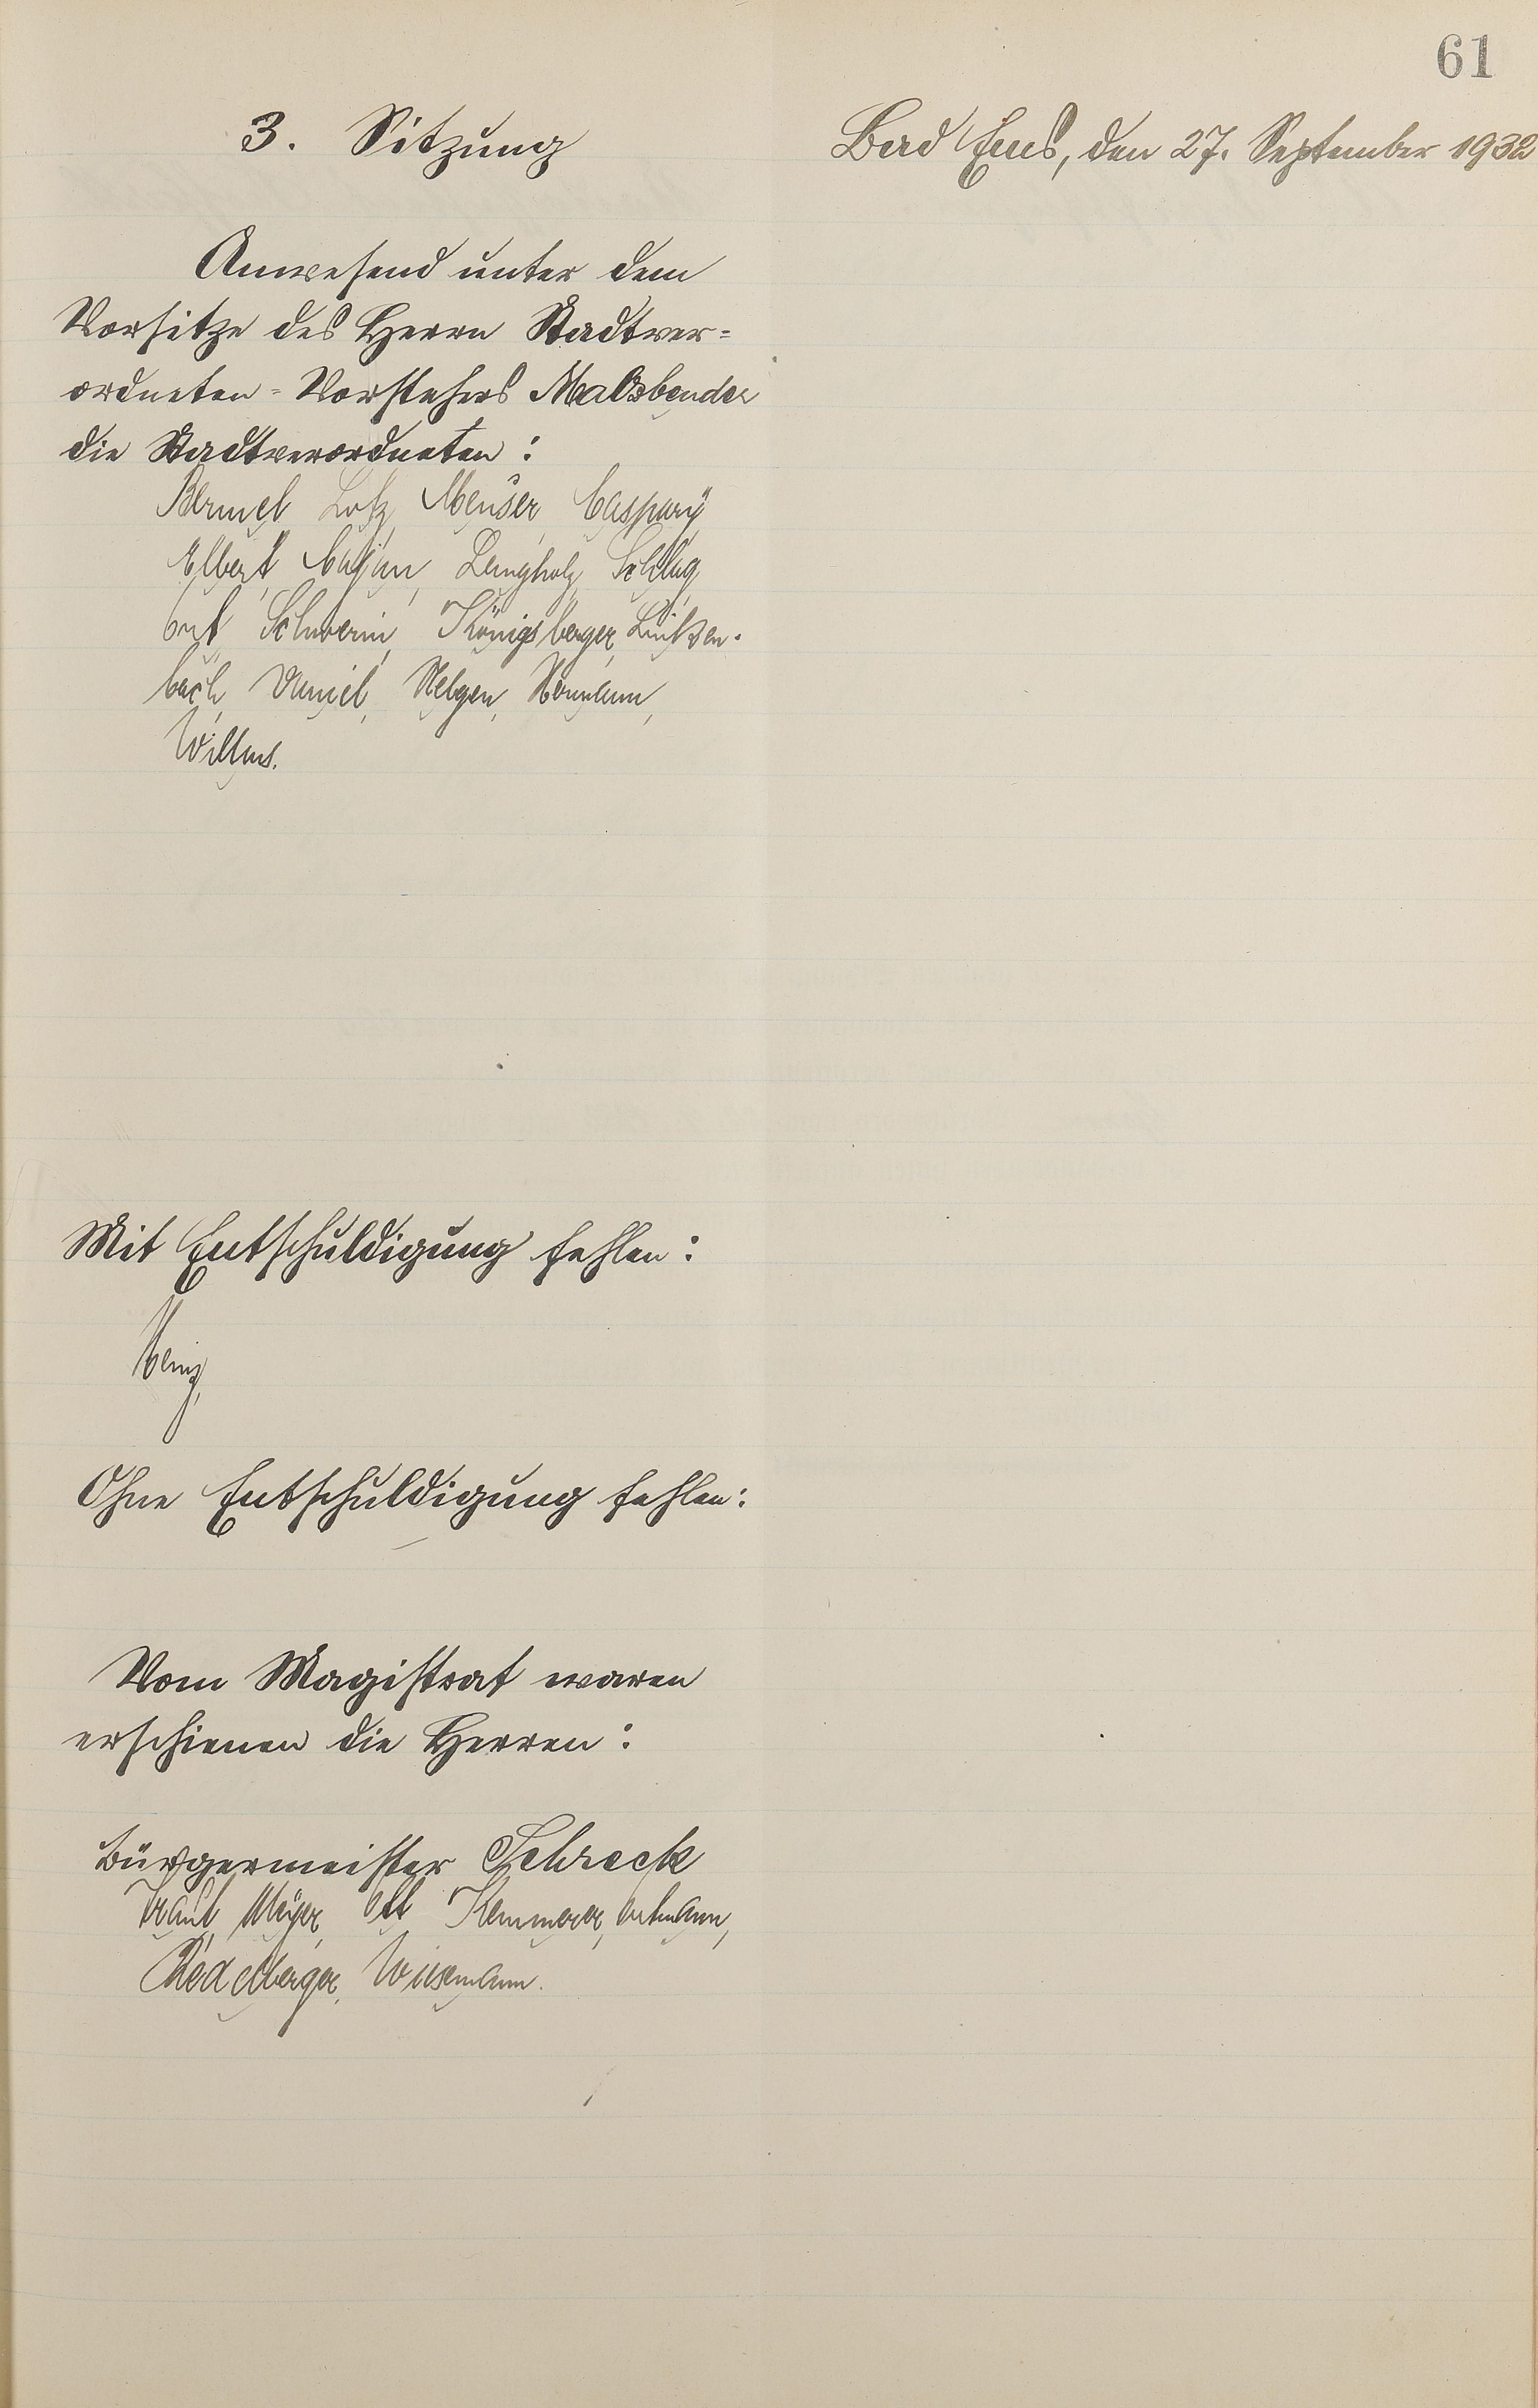 61
3. Sitzung
Bad Ems, den 27. September 1932
Anwesend unter dem
Vorsitze des Herrn Stadtver=
ordneten=Vorstehers Malsbender
die Stadtverordneten:
Bermel, Lotz, Meuser, Caspary,
Elbert, Langholz, Schlag,
Ort, Schwerin, Königsberger, Linken-
bach, Daniel, Helgen, Hermann,
Willms.
Mit Entschuldigung fehlen:
Ohne Entschuldigung fehlen:
Vom Magistrat waren
erschienen die Herren:
Bürgermeister Schreck
Meyer, Ott, Kemmerer, Ortmann,
Wiesemann.